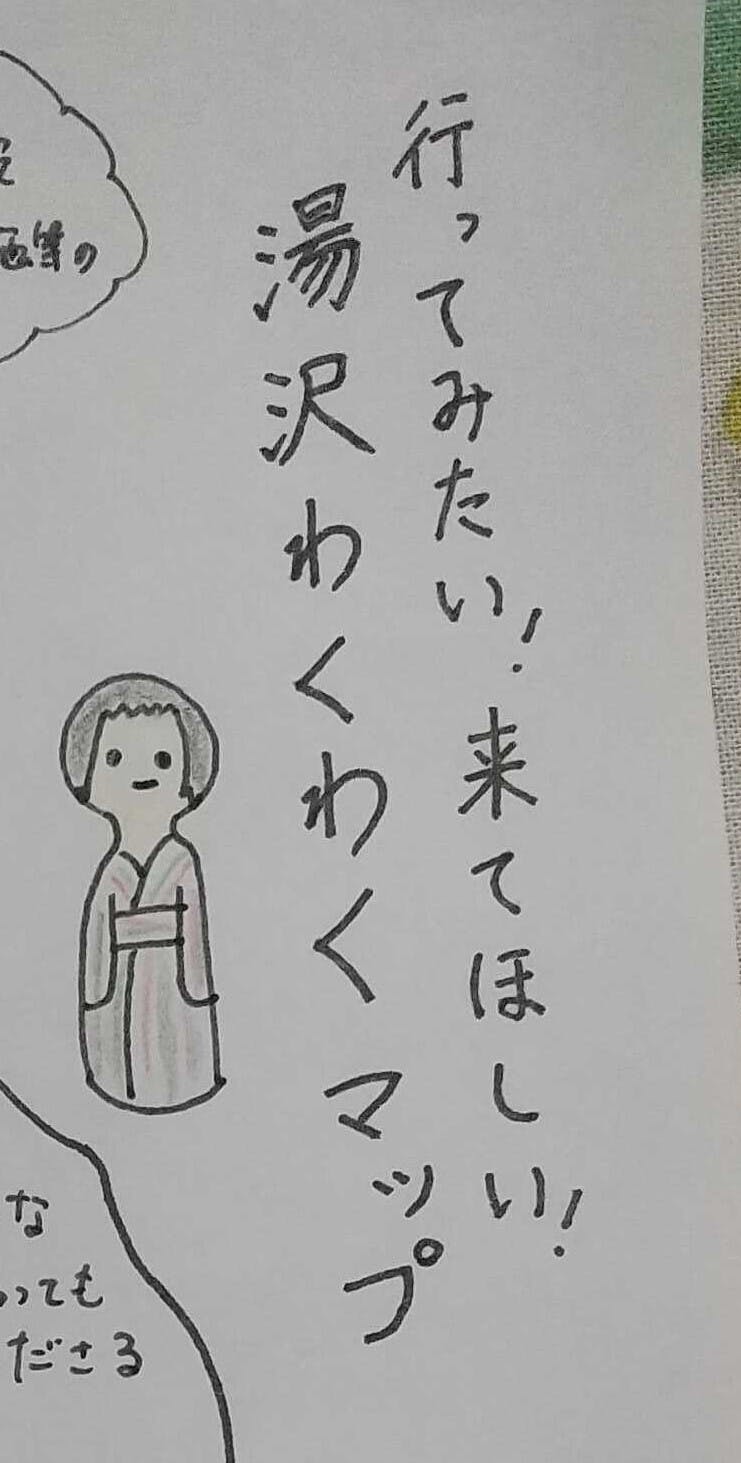 行ってみたい!来てほしい!
湯沢わくわくマップ
の
な
っても
ださる